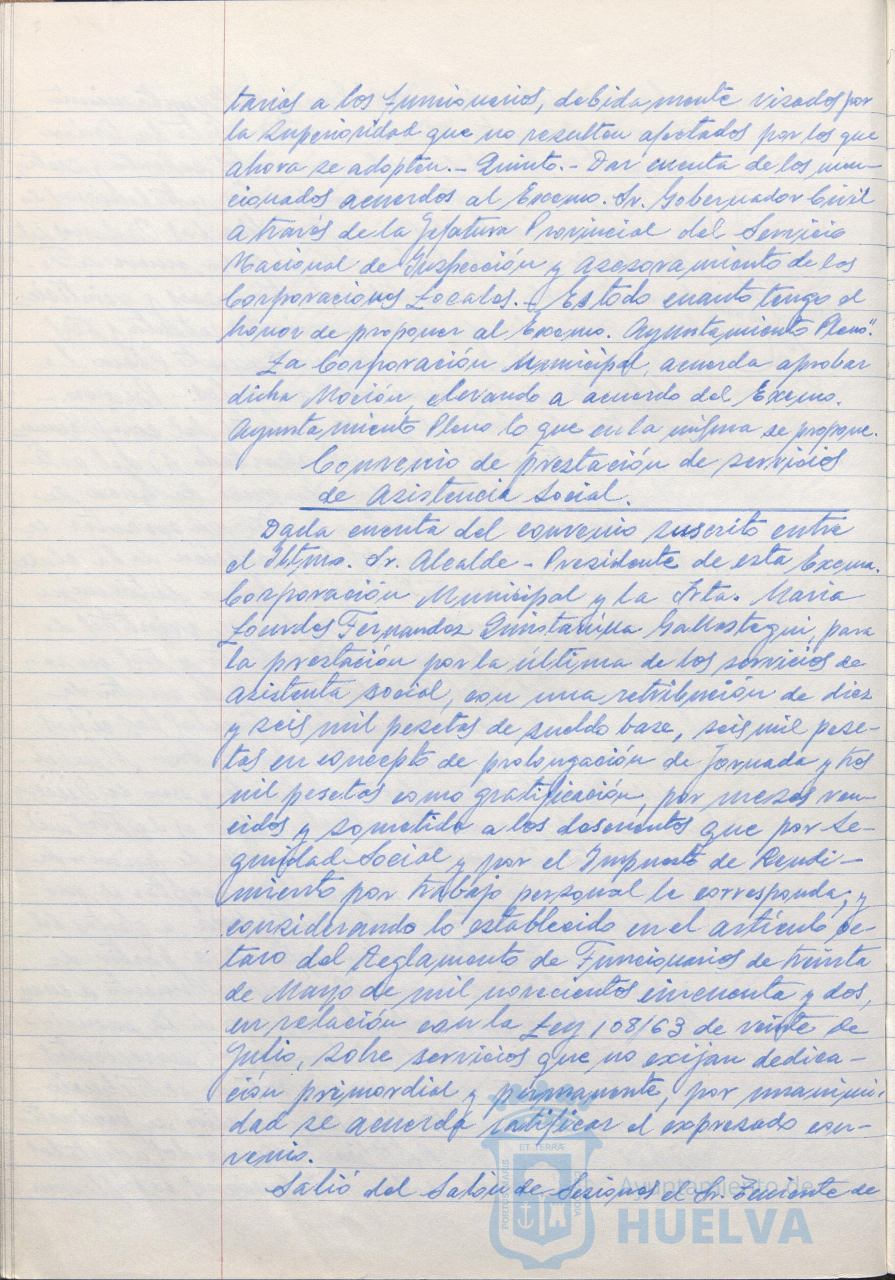 tarios a los funcionarios, debidamente visados por
la Superioridad que no resulten afectados por los que
ahora se adopten.- Quinto.- Dar cuenta de los men-
cionados acuerdos al Excmo. Sr. Gobernador Civil
a través de la Jefatura Provincial del Servicio
Nacional de Inspección y asesoramiento de las
Corporaciones Locales.- Es todo cuanto tengo el
honor de proponer al Excmo. Ayuntamiento Pleno".
La Corporación Municipal, acuerda aprobar
dicha Moción, elevando a acuerdo del Excmo.
Ayuntamiento Pleno lo que en la misma se propone.
Convenio de prestación de servicios
de Asistencia Social.
Dada cuenta del convenio suscrito entre
el Iltmo. Sr. Alcalde-Presidente de esta Excma.
Corporación Municipal y la Srta. Maria
Lourdes Fernandez Quintanilla Gallastegui, para
la prestación por la última de los servicios de
asistenta social, con una retribución de diez
y seis mil pesetas de sueldo base, seis mil pese-
tas en concepto de prolongación de jornada y tres
mil pesetas como gratificación, por meses ven-
cidos y sometido a los descuentos que por Se-
guridad Social y por el Impuesto de Rendi-
miento por trabajo personal le corresponda; y
considerando lo establecido en el artículo oc-
tavo del Reglamento de Funcionarios de treinta
de Mayo de mil novecientos cincuenta y dos,
en relación con la Ley 108/63 de veinte de
Julio, sobre servicios que no exijan dedica-
ción primordial y permanente, por unanimi-
dad se acuerda ratificar el expresado con-
venio.
Salió del Salón de Sesiones el Sr. Teniente de
PORTUS MARIS ET TERRÆ CUSTODIA
Ayuntamiento de
HUELVA